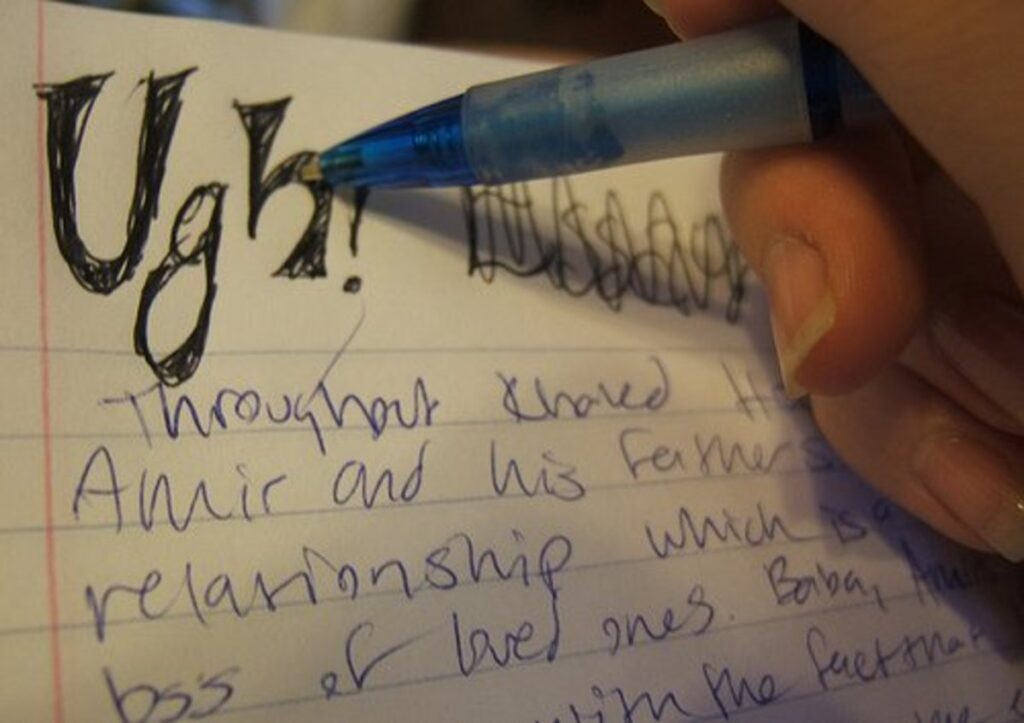 Ugh!
Throughout Khaled H
Amir and his Fathers
relationship which is a
loss of loved ones. Baba, Ami
with the fact that